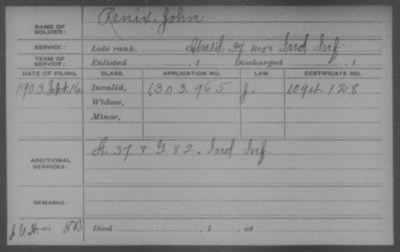 NAME OF SOLDIER: Renix, John
SERVICE: Late rank, Reg't Ind Inf
TERM OF SERVICE: Enlisted , 1 Discharged , 1
DATE OF FILING. CLASS. APPLICATION NO. LAW. CERTIFICATE NO.
1903 Sept 16 Invalid, 1303.965 J. 1098.128
Widow,
Minor,
ADDITIONAL SERVICES: A. 37 & G 82. Ind Inf
REMARKS:
Died , 1 , at